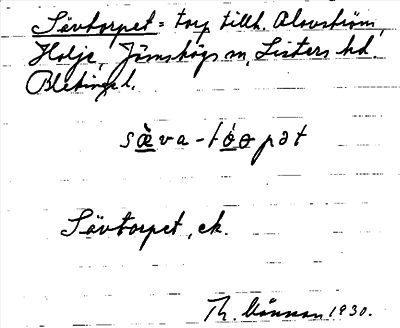 Sävtorpet = torp tillh. Alovström,
Holje, Jämshögs sn, Listers hd.
Blekinge l.
sæ̀va-tórpət
Sävtorpet, ek.
Th. 1930.